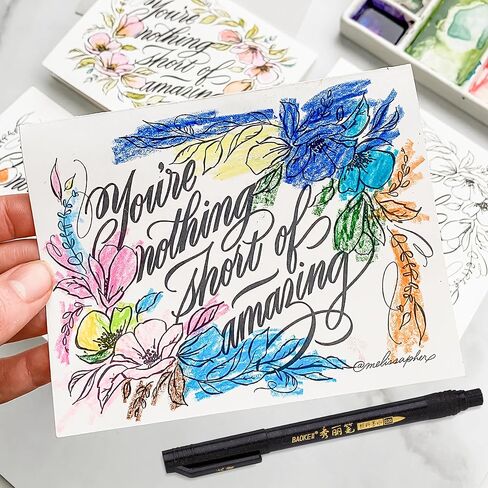 You're
nothing
short of
amazing
You're
nothing
short of
amazing
@melissapher
BAOKE 秀丽笔